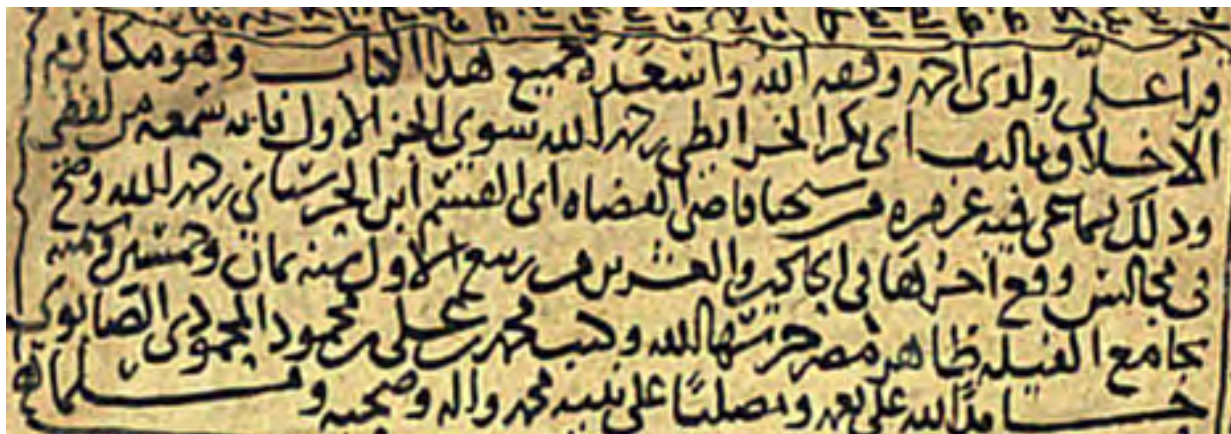 قرأ علي ولدي احمد وفقه الله واسعده جميع هذا الكتاب وهو مكارم
الاخلاق تاليف ابي بكر الخرايطي رحمه الله سوى الجزء الاول فانه سمعه من لفظي
وذلك بسماعي فيه غير مره من شيخنا قاضي القضاه ابي القسم ابن الحرستاني رحمه الله وصح
في مجالس وقع آخرها في والعشرين من ربيع الاول سنه ثمان وخمسين وستمئة
بجامع الفيله ظاهر مصر حرسها الله وكتب محمد بن علي بن محمود المحمودي الصابوني
حامدا لله على نعمه ومصليا على نبيه محمد واله وصحبه ومسلما